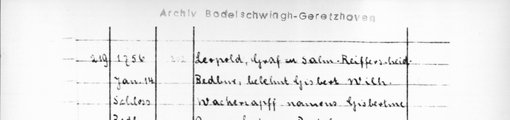 Archiv Bodelschwingh-Geretzhoven
219 1756 Leopold, Graf zu Salm-Reifferscheid-
Jan. 14 Bedbur, belehnt Gisbert Wilh.
Schloss Wachertapff namens